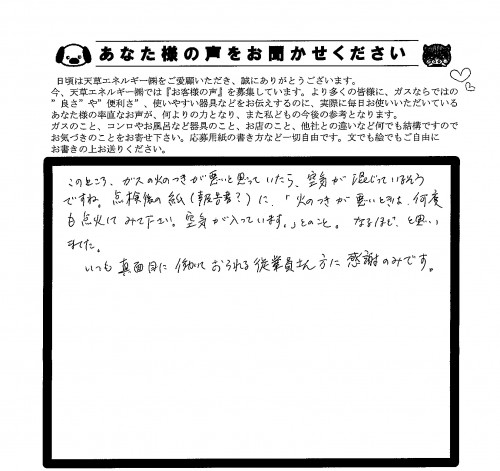 あなた様の声をお聞かせください
日頃は天草エネルギー㈱をご愛顧いただき、誠にありがとうございます。
今、天草エネルギー㈱では『お客様の声』を募集しています。より多くの皆様に、ガスならではの
”良さ”や”便利さ”、使いやすい器具などをお伝えするのに、実際に毎日お使いいただいている
あなた様の率直なお声が、何よりの力となり、また私どもの今後の参考となります。
ガスのこと、コンロやお風呂など器具のこと、お店のこと、他社との違いなど何でも結構ですので
お気づきのことをお寄せ下さい。応募用紙の書き方など一切自由です。文でも絵でもご自由に
お書きの上お送りください。
このところ、ガスの火のつきが悪いと思っていたら、空気が混じっているそう
ですね。点検後の紙(報告書?)に、「火のつきが悪いときは、何度
も点火してみて下さい。空気が入っています。」とのこと。なるほど、と思い
ました。
いつも真面目に働いておられる従業員さん方に感謝のみです。